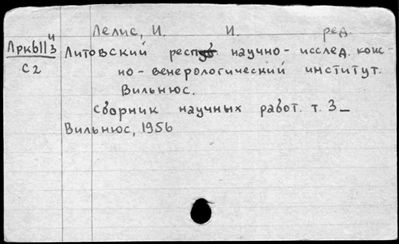 Лелис, И. И. ред.
Литовский респуб научно-исслед. кож-
но-венерологический институт.
Вильнюс.
Сборник научных работ. т. 3_
Вильнюс, 1956
С2